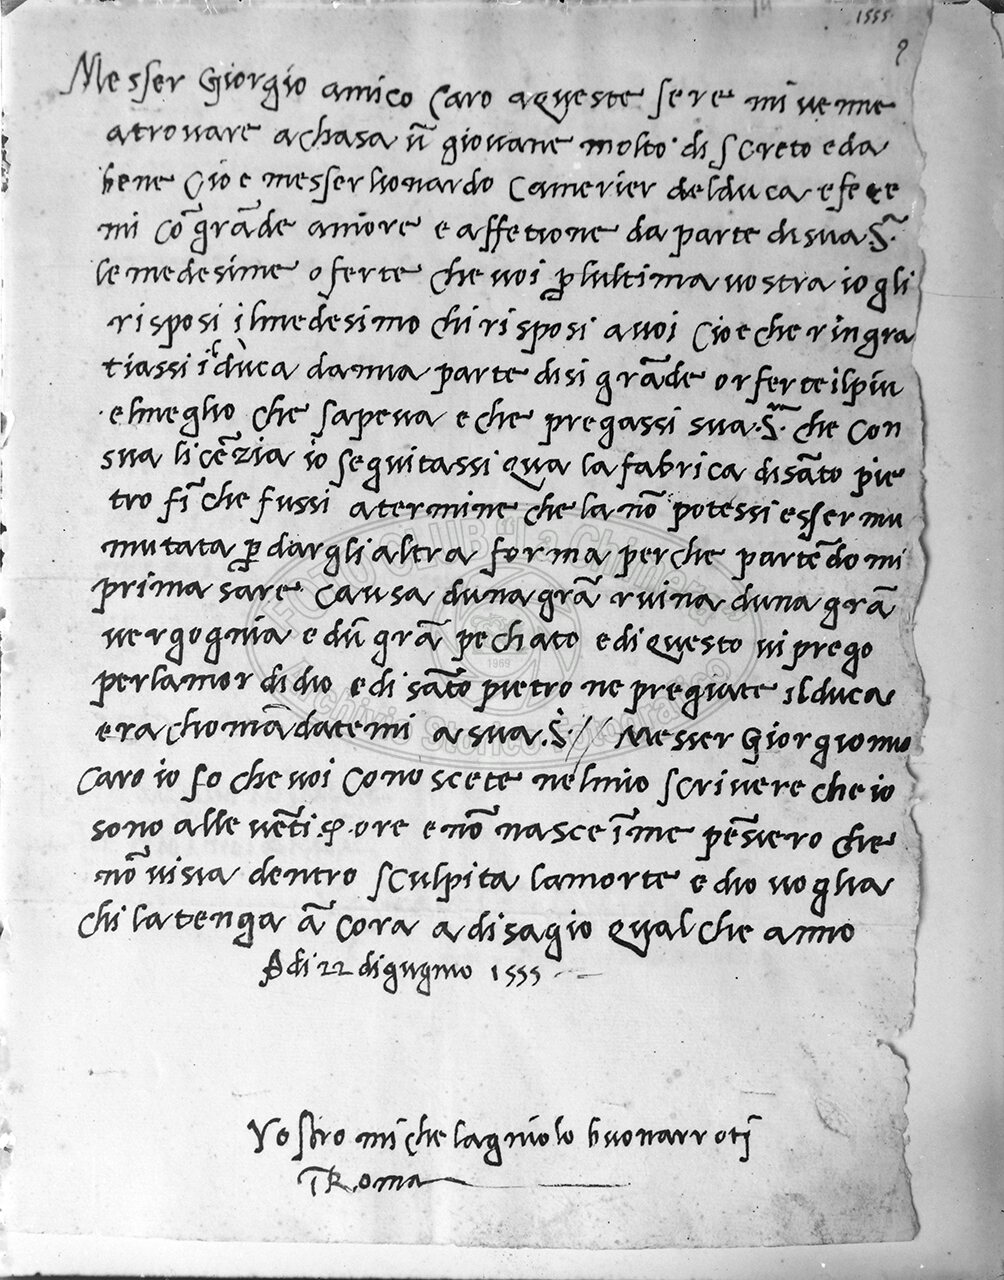 1555
Messer Giorgio amico caro a queste sere mi venne
a trovare a chasa ū giovane molto discreto e da
bene cioe messer lionardo camerier del duca e fece
mi cō grāde amore e affetione da parte di sua S̄.
le medesime oferte che voi p̱ lultima vostra io gli
risposi il medesimo chi risposi a voi cioe che ringra
tiassi il duca da mia parte di si grāde oferte il piu
e l meglio che sapeva e che pregassi sua S̄. che con
sua licēzia io seguitassi qua la fabrica di sāto pie
tro fī che fussi a termine che la nō potessi esser mu
mutata p̱ dargli altra forma perche partēdomi
prima sare causa duna grā ruina duna grā
vergognia e dū grā pechato e di questo vi prego
per lamor di dio e di sāto pietro ne pregiate il duca
e rachomādatemi a sua .S̄. // Messer Giorgio mio
caro io so che voi conoscete nel mio scrivere che io
sono alle vēti 4 ore e nō nasce ī me pēsiero che
nō vi sia dentro sculpita la morte e dio voglia
chi la tenga ācora a disagio qualche anno
A di 22 di gugnio 1555
Vostro michelagniolo buonarroti
ī Roma
FOTO CLUB "La Chimera"
1969
Archivio Storico Fotografico